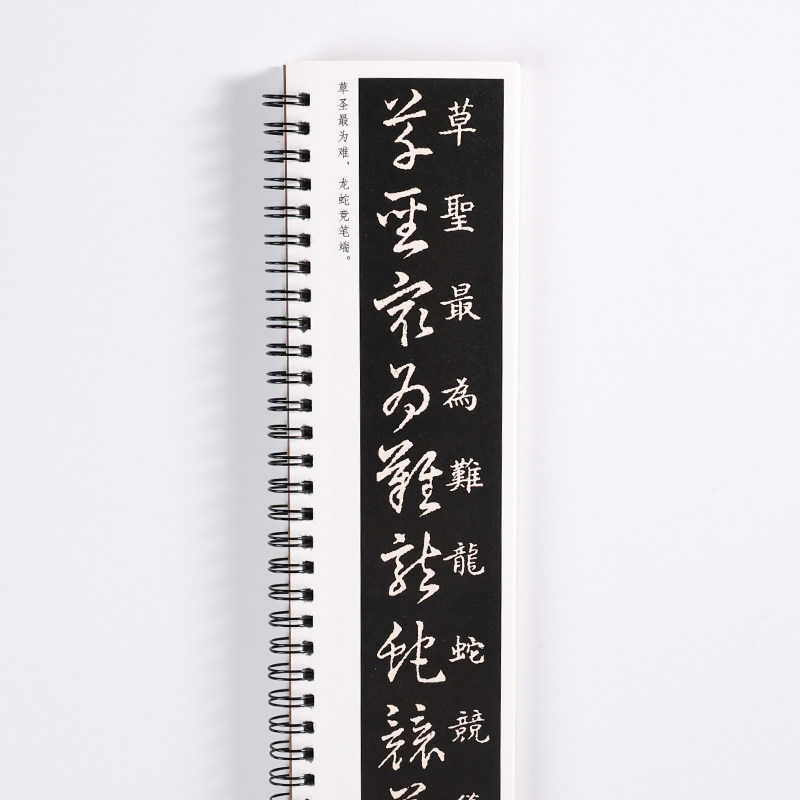 草圣最为难，龙蛇竞笔端。
草聖最為難龍蛇競
草聖最為難龍蛇競